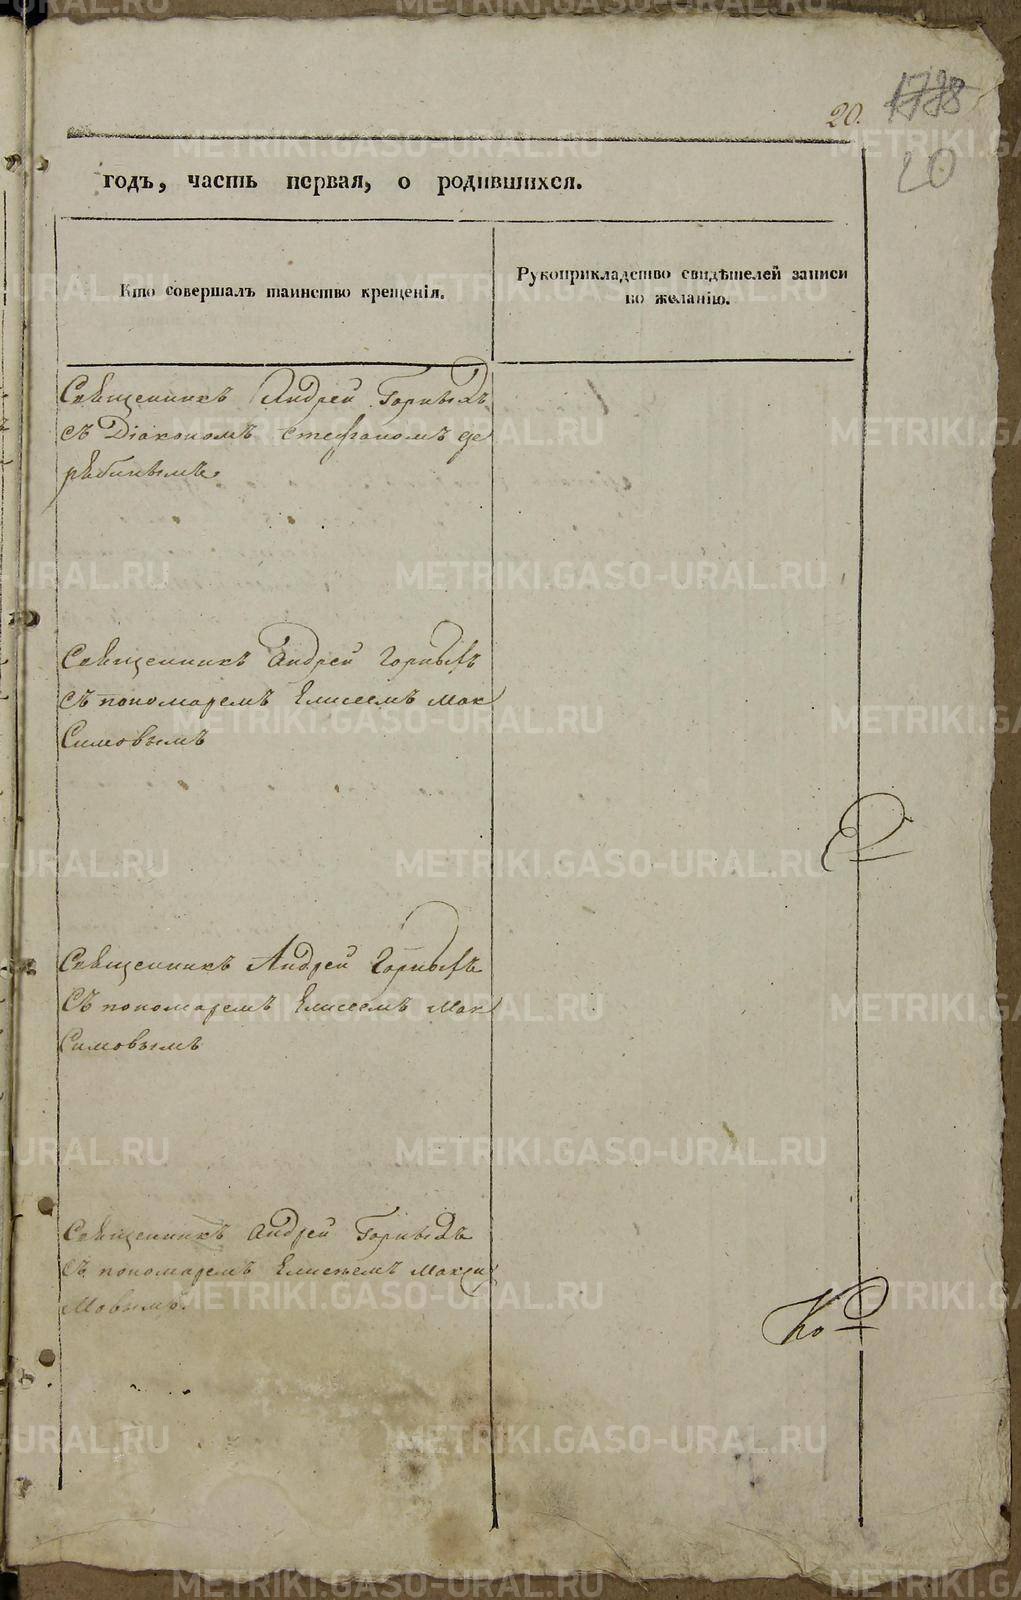 20.
20
годъ, часть первая, о родившихся.
Кто совершалъ таинство крещенія.
Рукоприкладство свидѣтелей записи
по желанію.
Священникъ Андрей Горныхъ
съ Діакономъ Стефаномъ де
рябинымъ
Священникъ Андрей Горныхъ
съ пономаремъ Елисеемъ Мак
симовымъ
Священникъ Андрей Горныхъ
Съ пономаремъ Елисеемъ Мак
симовымъ
Священникъ Андрей Горныхъ
съ пономаремъ Елисѣемъ Макси
мовымъ.
METRIKI.GASO-URAL.RU